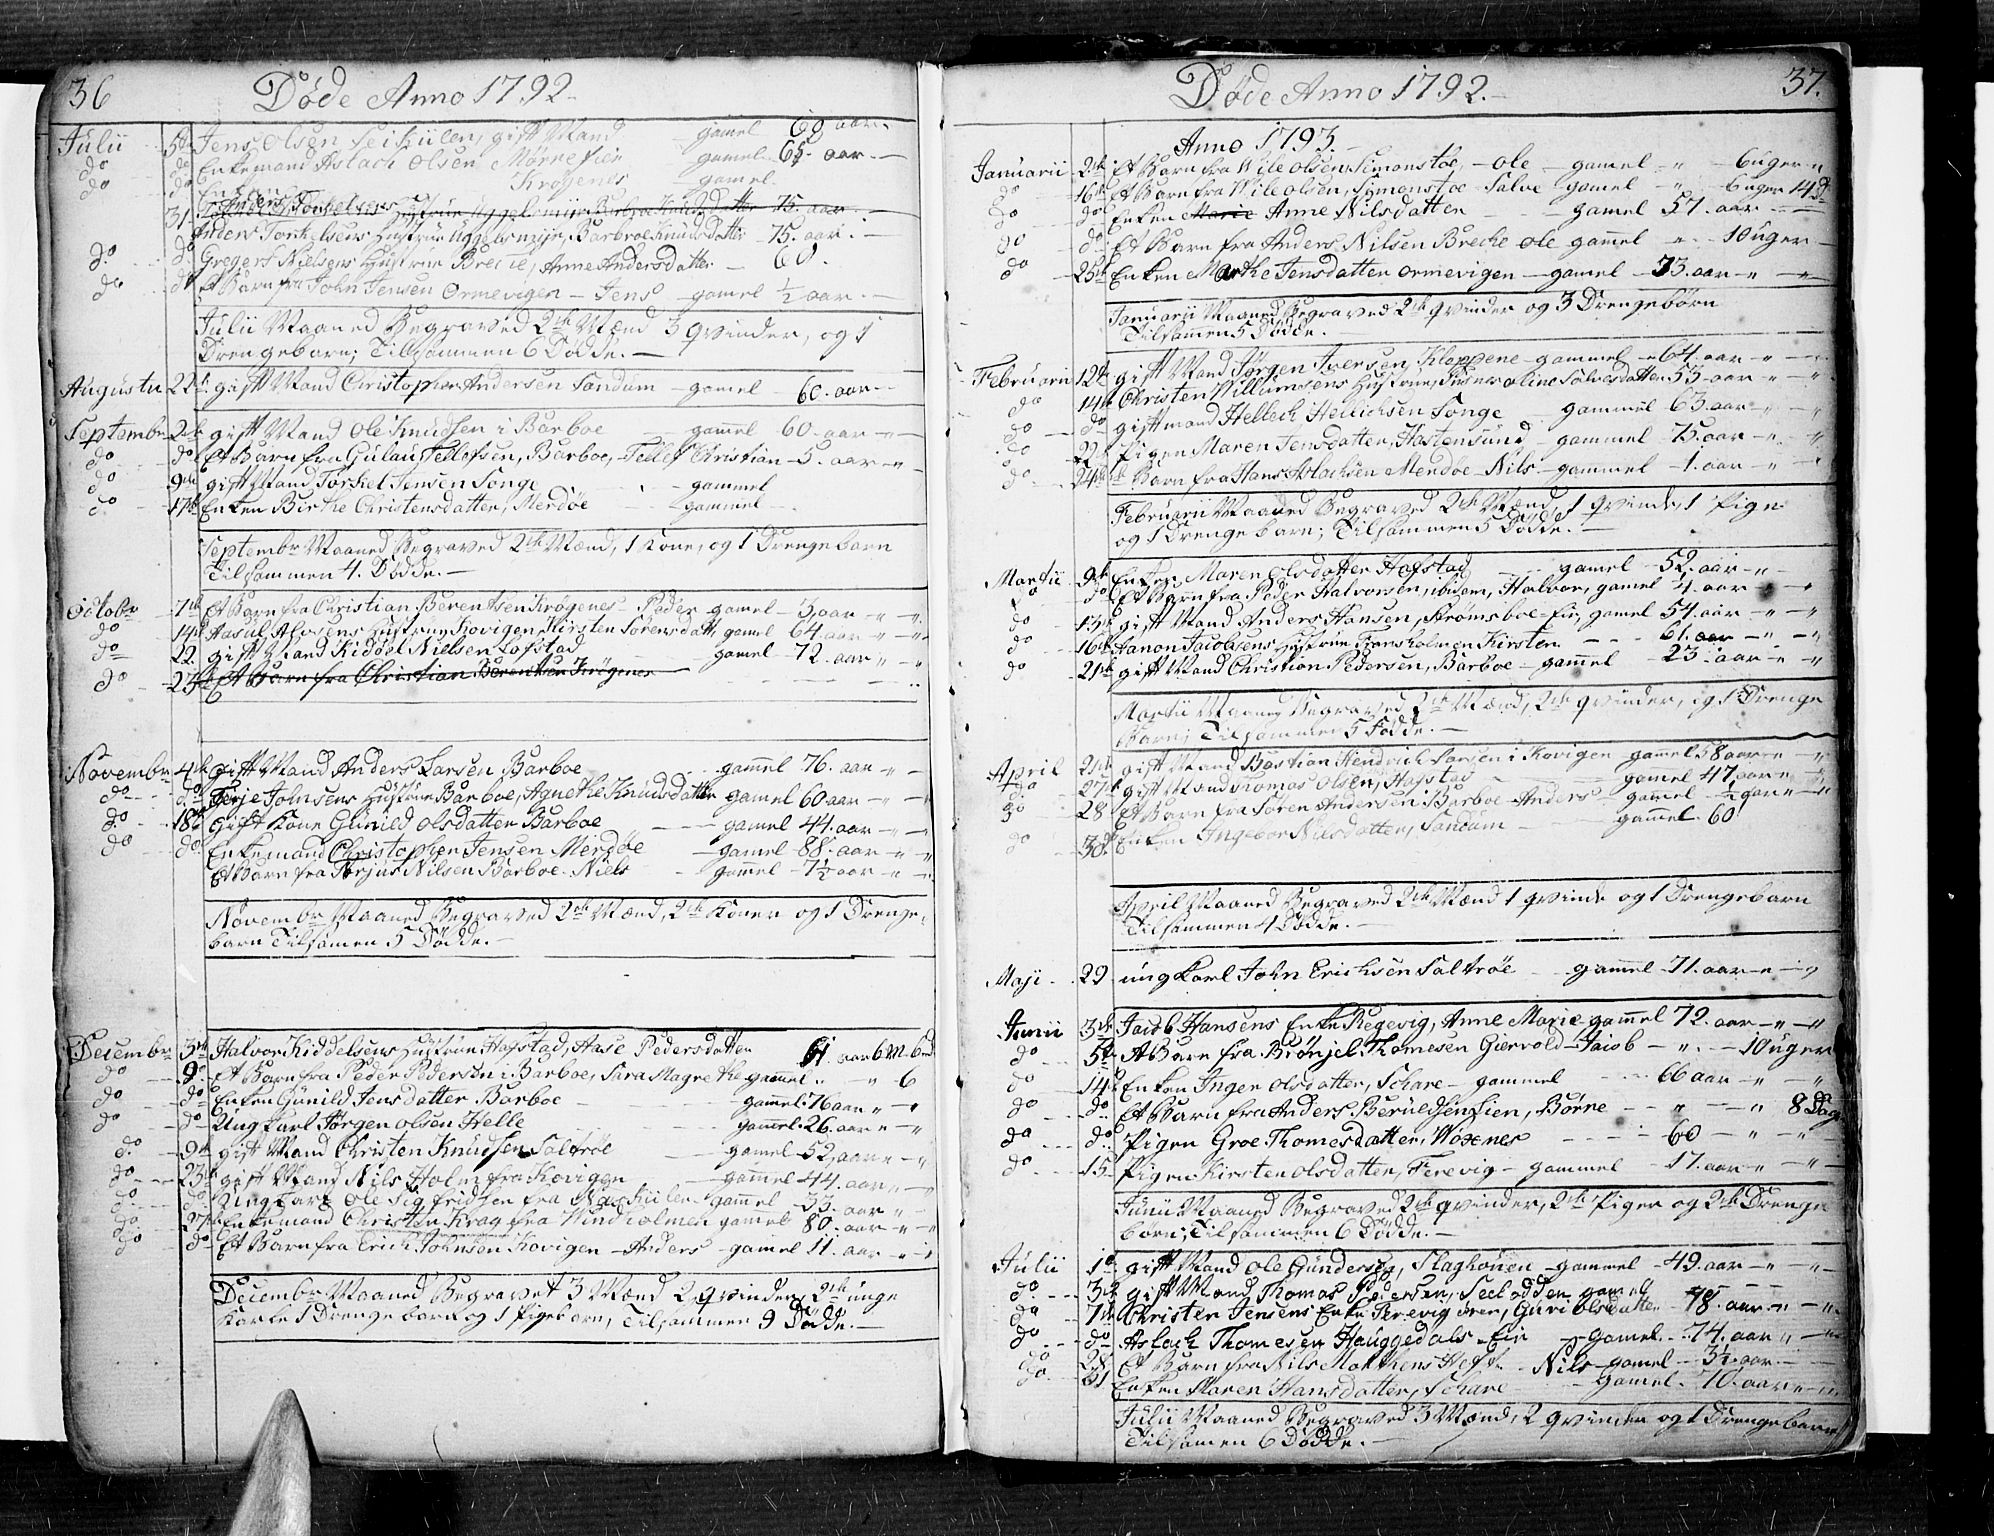 36 Døde Anno 1792.
Julii 5te Jens Olsen Seikulen, gift Mand gamel 60 aar
do do Enkemand Aslach Olsen Mørnefier gamel 65. aar
do do Enken Krøgenes gamel
Anders Torkelsens Hustrue Aggelsmiir Barbroe Knudsdatter 75. aar
31 Anders Torkelsens Hustrue Aggelsmijr, Barbroe Knudsdatter 75. aar
do do Gregers Nielsens Hustrue Breche, Anne Andersdatter 60.
do do Et Barn fra John Jensen Ormevigen - Jens gamel 1/2 aar
Julii Maaned Begraved 2de Mænd 3 qvinder, og 1
Drengebarn; Tilsammen 6 Dødde.
Augusti 22 gift Mand Christopher Andersen Sandum gamel 60. aar
Septembr 2de gift Mand Ole Knudsen i Barboe gamel 60. aar
do do Et Barn fra Gulau Tellefsen, Barboe, Tellef Christian 5. aar
do 9de gift Mand Torkel Jensen Songe gammel
do 17de Enken Birthe Christensdatter, Merdøe gammel
Septembr Maaned Begraved 2de Mænd, 1 Kone, og 1 Drengebarn
Tilsammen 4. Dødde.
Octobr 7de Et Barn fra Christian Berentsen Krøgenes - Peder gamel 3 aar
do 14de Aasul Alvsens Hustrue Kovigen Kirsten Sørensdatt. gamel 64. aar
do 22 gift Mand Kiddel Nielsen Løfstad gamel 72. aar
do 23 Et Barn fra Christian Berentsen Krøgenes
Novembr 4de gift Mand Anders Larsen Barboe gammel 76. aar
do do Terje Johnsens Hustrue Barboe, Agnethe Knudsdatter gamel 60 aar
do 18de Gift Kone Gunild Olsdatter Barboe gamel 44. aar
do do Enkemand Christopher Jensen Merdøe gamel 88. aar
Et Barn fra Torjus Nilsen Barboe - Niels gammel 7 1/2 aar
Novembr Maaned Begraved 2de Mænd, 2de Koner og 1 Drenge-
barn Tilsamen 5 Dødde.
Decembr 3de Halvor Kiddelsens Hustrue Hafstad, Aase Pedersdatter 61. aar 6 M.
do 9de Et Barn fra Peder Pedersen i Barboe, Sara Magrethe gammel 6
do do Enken Gunild Jensdatter Barboe gammel 76 aar
do do Ung Karl Jørgen Olsen Helle gammel 26. aar
do 9de gift Mand Christen Knudsen Saltrøe gamel 52, aar
do 23de gift Mand Nils Holm fra Kovigen gammel 44. aar
do do Ung Karl Ole Sigfridsen fra Naskilen gammel 33. aar
do 27de Enkemand Christen Krag fra Windholmen gamel 80. aar
do do Et Barn fra Erich Johnsen Kovigen - Anders gamel 11. aar
Decembr Maaned Begravet 3 Mænd 2 qvinder, 2de unge
Karle 1 Drengebarn og 1 Pigebarn, Tilsammen 9 Dødde.
Døde Anno 1792. 37.
Anno 1793.
Januarii 2de Et Barn fra Wile Olsen Simonstøe, - Ole gamel 6 uger
do 16de Et Barn fra Wile Olsen, Simonstøe Salve gamel 6 uger 4 d
do do Enken Marie Anne Nilsdatter gamel 57. aar
do do Et Barn fra Anders Nilsen Breche Ole gamel 10 uger
do 25de Enken Marthe Jensdatter Ormevigen gamel 73. aar
Januarii Maaned Begraved 2de qvinder og 3 Drengebørn
Tilsammen 5 Dødde.
Februarii 12te gift Mand Jørgen Iversen Kloppene gammel 64. aar
do 14de Christen Willumsens Hustrue, Salvesdatter 53. aar
do do gift mand Hellech Hellichsen Songe gammel 63. aar
do 22 Pigen Maren Jensdatter, Hastensund gammel 75. aar
do 24de Et Barn fra Hans Aslachsen Merdøe Nils gammel 1. aar
Februarii Maaned Begraved 2de Mænd, 1 qvinde, 1 Pige
og 1 Drengebarn; Tilsammen 5 Dødde.
Martii 9de Enken Maren Olsdatter Hafstad gamel 52. aar
do do Et Barn fra Peder Halvorsen, ibidem, Halvor, gamel 4. aar
do 13de gift Mand Anders Hansen, Strømsboe-Eie, gamel 54. aar
do 16de Aanon Jacobsens Hustrue Kirsten 61. aar
do 21de gift Mand Christian Pedersen, Barboe gammel 23. aar
Martii Maaned Begraved 2de Mænd, 2de qvinder, og 1 Drenge
Barn; Tilsammen 5 Dødde.
April 21de gift Mand Bastian Hendrich Larsen i Kovigen gammel 58 aar
do 27de gift Mand Tomas Olsen, Hafstad gamel 47, aar
do 28 Et Barn fra Søren Andersen Barboe Anders gammel 1/2 aar
do 30. Enken Ingebor Nilsdatter, Sandum gammel 60
April Maaned Begraved 2de Mænd 1 qvinde og 1 Drengebarn
Tilsammen 4 Dødde.
Maji 29 ung Karl John Erichsen Saltrøe gammel 71. aar
Junii 3de Jacob Hansens Enke Regevig, Anne Marie gammel 72. aar
do 5te Et Barn fra Brønjel Thomesen Giervold - Jacob 10 uger
do 14de Enken Inger Olsdatter, Schare gammel 66 aar
do do Et Barn fra Anders Berulfsen Eien, Børne 8 Dage
do do Pigen Groe Thomesdatter, Woxnes 60
do 15. Pigen Kirsten Olsdatter, Ferevig gammel 17. aar
Junii Maaned Begraved 2de qvinder, 2de Piger og 2de Drenge
børn; Tilsammen 6 Dødde.
Julii 1te gift Mand Ole Gundersen, Flaghouen gammel 49. aar
do 3de gift Mand Thomas Pedersen, gamel
do 7de Christen Jensens Enke Ferevig Guri Olsdatter 78. aar
do do Aslach Thomesen Hauggedals-Eie gamel 74. aar
do 28 Et Barn fra Nils Matthens Heft Nils gamel 3 1/2 aar
do 31 Enken Maren Hansdatter, Schare gamel 70. aar
Julii Maaned Begraved 3 Mænd, 2 qvinder og 1 Drengebarn
Tilsamen 6 Dødde.